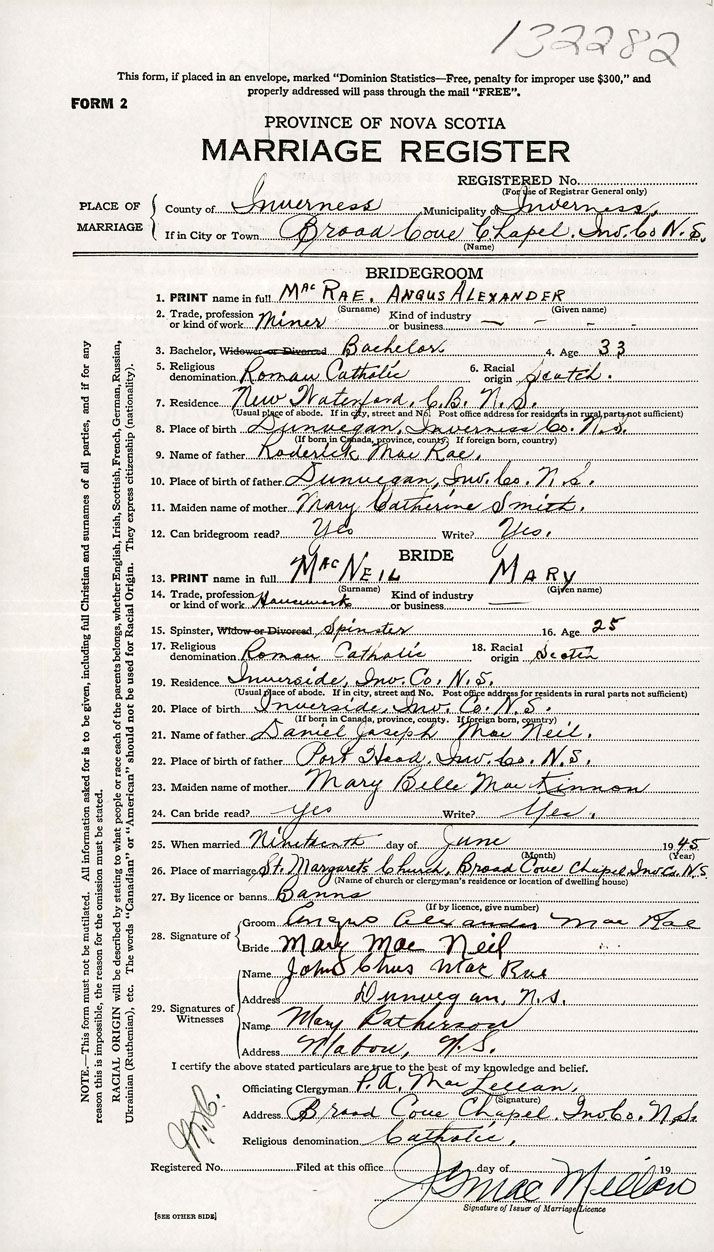 132282
This form, if placed in an envelope, marked “Dominion Statistics—Free, penalty for improper use $300,” and
properly addressed will pass through the mail “FREE”.
FORM 2
PROVINCE OF NOVA SCOTIA
MARRIAGE REGISTER
REGISTERED No.
(For Use of Registrar General only)
PLACE OF MARRIAGE
County of Inverness Municipality of Inverness.
If in City or Town Broad Cove Chapel. Inv. Co N.S.
(Name)
BRIDEGROOM
1. PRINT name in full MacRAE. ANGUS ALEXANDER
(Surname) (Given name)
2. Trade, profession or kind of work Miner Kind of industry or business — – – –
3. Bachelor, Widower or Divorced Bachelor. 4. Age 33
5. Religious denomination Roman Catholic 6. Racial origin Scotch.
7. Residence New Waterford, C.B. N.S.
(Usual place of abode. If in city, street and No. Post office address for residents in rural parts not sufficient)
8. Place of birth Dunvegan, Inverness Co. N.S.
(If born in Canada, province, county. If foreign born, country)
9. Name of father Roderick Mac Rae.
10. Place of birth of father Dunvegan, Inv. Co. N.S.
11. Maiden name of mother Mary Catherine Smith.
12. Can bridegroom read? Yes Write? Yes.
BRIDE
13. PRINT name in full MacNEIL MARY
(Surname) (Given name)
14. Trade, profession or kind of work Housework Kind of industry or business —
15. Spinster, Widow or Divorced Spinster 16. Age 25
17. Religious denomination Roman Catholic 18. Racial origin Scotch
19. Residence Inverside, Inv. Co. N.S.
(Usual place of abode. If in city, street and No. Post office address for residents in rural parts not sufficient)
20. Place of birth Inverside, Inv. Co. N.S.
(If born in Canada, province, county. If foreign born, country)
21. Name of father Daniel Joseph Mac Neil.
22. Place of birth of father Port Hood, Inv. Co. N.S.
23. Maiden name of mother Mary Belle Mac Kinnon
24. Can bride read? Yes Write? Yes.
25. When married Nineteenth day of June 1945
(Month) (Year)
26. Place of marriage St. Margarets Church, Broad Cove Chapel Inv. Co. N.S
(Name of church or clergyman's residence or location of dwelling house)
27. By licence or banns Banns
(If by licence, give number)
28. Signature of
Groom Angus Alexander Mac Rae
Bride Mary Mac Neil
29. Signatures of Witnesses
Name John Chus Mac Rae
Address Dunvegan, N.S.
Name Mary
Address Mabou, N.S.
I certify the above stated particulars are true to the best of my knowledge and belief.
Officiating Clergyman P.A. Mac Lellan.
(Signature)
Address Broad Cove Chapel. Inv Co. N.S.
Religious denomination Catholic.
Registered No. Filed at this office day of 19
J Mac Millan
Signature of Issuer of Marriage Licence
[SEE OTHER SIDE]
NOTE.—This form must not be mutilated. All information asked for is to be given, including full Christian and surnames of all parties, and if for any
reason this is impossible, the reason for the omission must be stated.
RACIAL ORIGIN will be described by stating to what people or race each of the parents belongs, whether English, Irish, Scottish, French, German, Russian,
Ukrainian (Ruthenian), etc. The words “Canadian” or “American” should not be used for Racial Origin. They express citizenship (nationality).